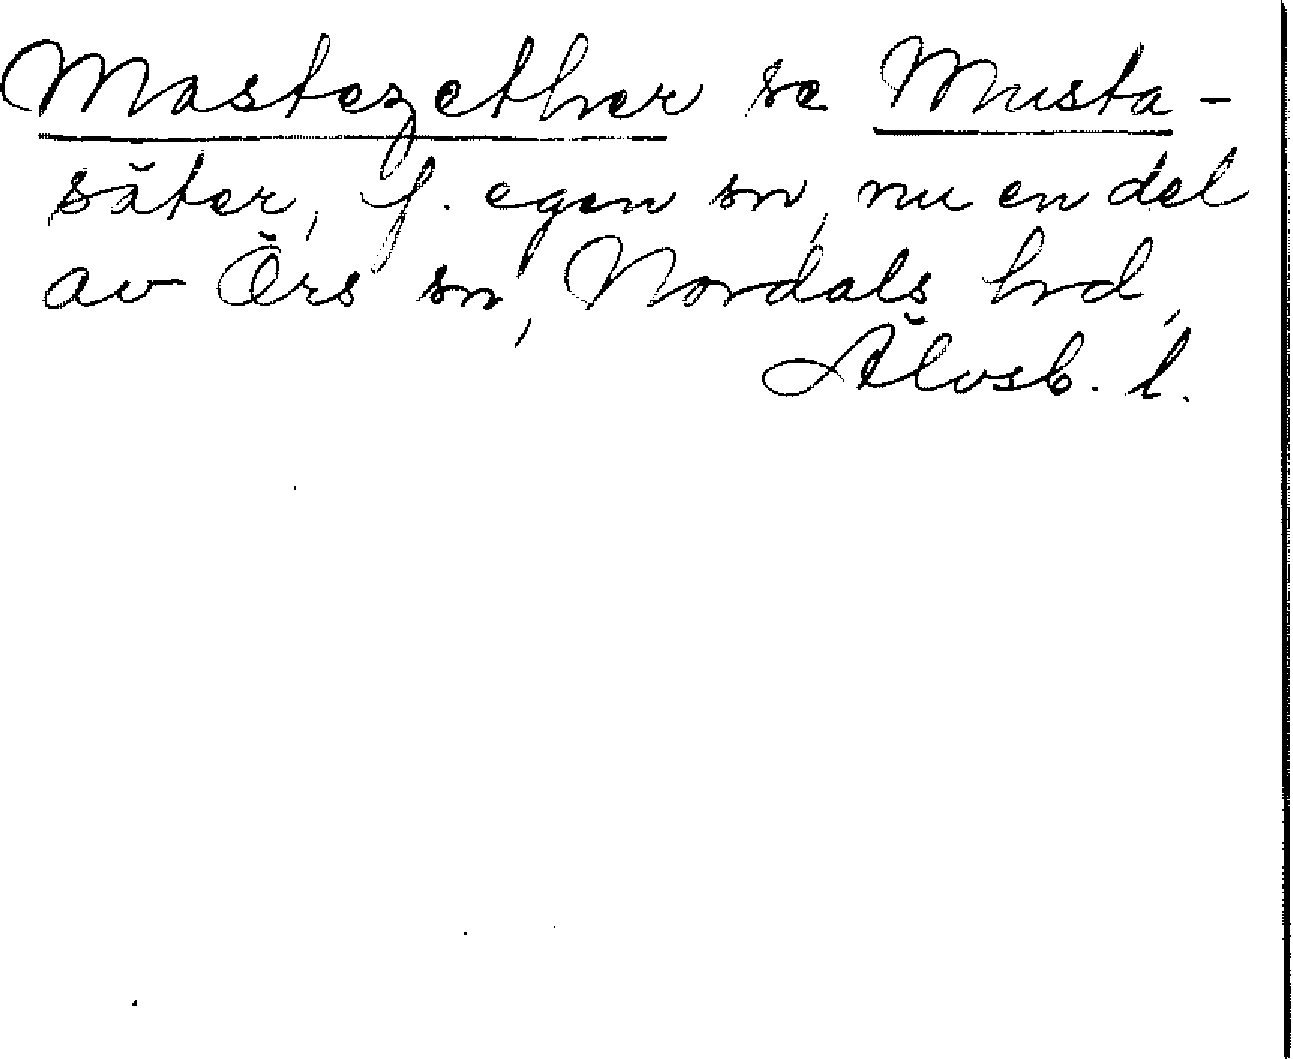 Mastezether se Musta-
säter, f. egen sn, nu en del
av Örs sn, Nordals hrd,
Älvsb. l.